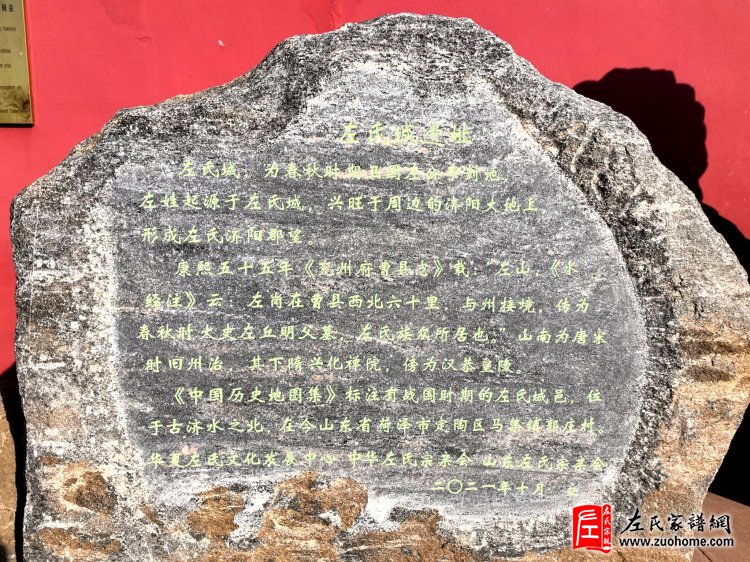 左氏城遗址
左氏城，为春秋时期曹国左公子封地，
左姓起源于左氏城，兴旺于周边的济阳大地上，
形成左氏济阳郡望。
康熙五十五年《兖州府曹县志》载：“左山，《水
经注》云：左岗在曹县西北六十里，与州接境，传为
春秋时太史左丘明父墓，左氏族众所居也。”山南为唐宋
时旧州治，其下隋兴化禅院，传为汉恭皇陵。
《中国历史地图集》标注有战国时期的左氏城邑，位
于古济水之北，在今山东省菏泽市定陶区马集镇郭庄村。
华夏左氏文化发展中心 中华左氏宗亲会 山东左氏宗亲会
二〇二一年十月 立
左氏家譜網
www.zuohome.com